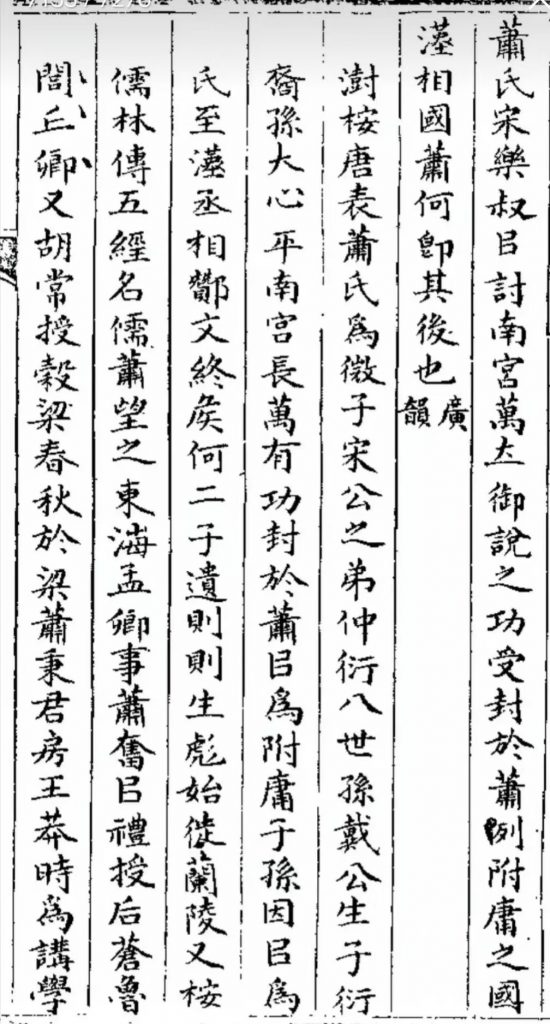 蕭氏宋樂叔㠯討南宮萬立御說之功受封於蕭例附庸之國
漢相國蕭何卽其後也廣韻
澍桉唐表蕭氏爲微子宋公之弟仲衍八世孫戴公生子衍
裔孫大心平南宮長萬有功封於蕭㠯爲附庸子孫因㠯爲
氏至漢丞相酇文終矦何二子遺則則生彪始徙蘭陵又桉
儒林傳五經名儒蕭望之東海孟卿事蕭奮㠯禮授后蒼魯
閭丘卿又胡常授穀梁春秋於梁蕭秉君房王莽時爲講學